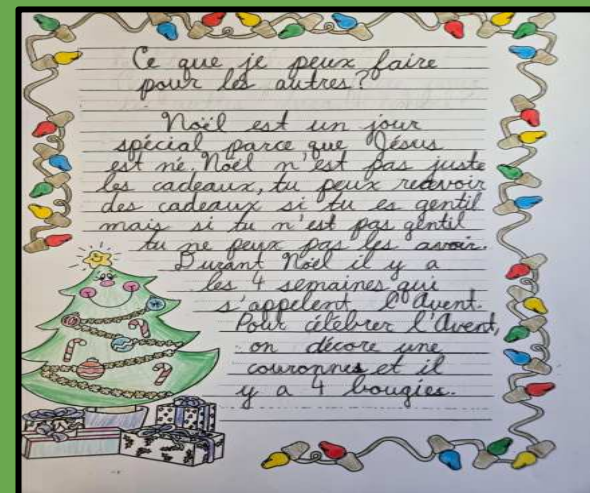 Ce que je peux faire
pour les autres?
Noël est un jour
spécial parce que Jésus
est né. Noël n'est pas juste
les cadeaux, tu peux recevoir
des cadeaux si tu es gentil
mais si tu n'est pas gentil
tu ne peux pas les avoir.
Durant Noël il y a
les 4 semaines qui
s'appelent l'Avent.
Pour célébrer l'Avent,
on décore une
couronnes et il
y a 4 bougies.